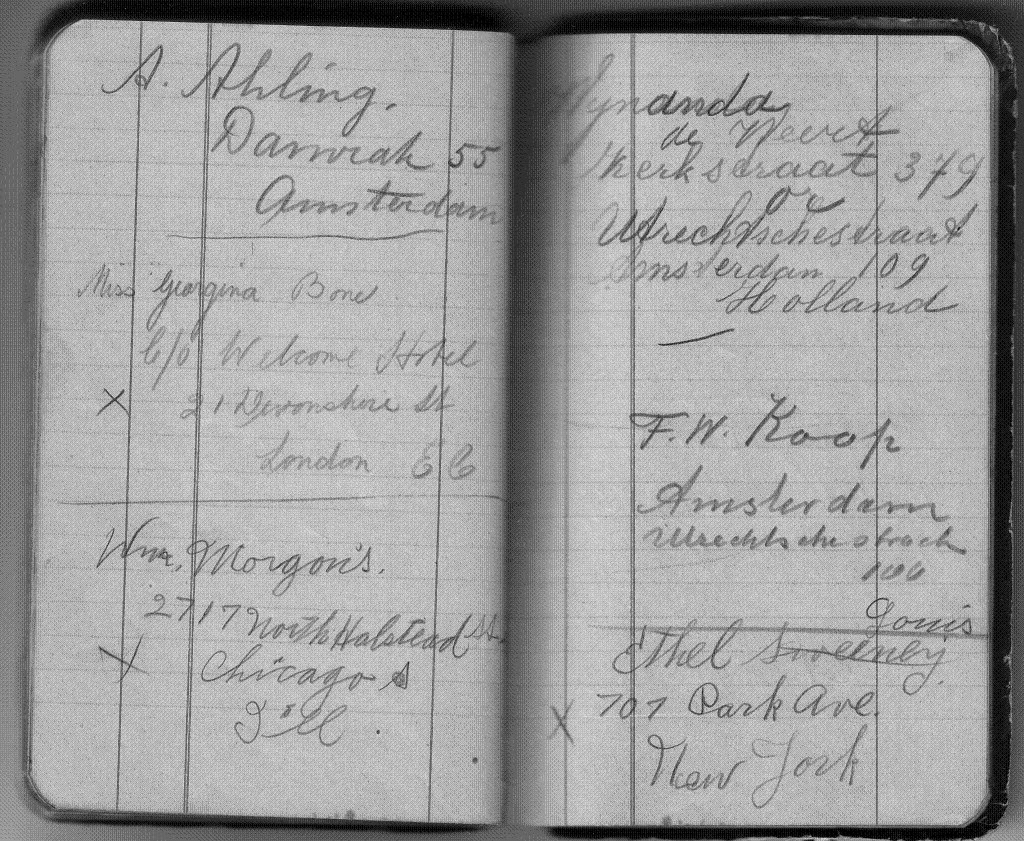 A. Ahling.
Damrak 55
Amsterdam
Miss Georgina Bone
C/o Welcome Hotel
X 21 Devonshire St
London E C
Wm. Morgon's.
2717 North Halstead St.
X Chicago
Ill
Wynanda
de Weert
Kerkstraat 379
or
Utrechtschestraat
Amsterdam 109
Holland
F. W. Koop
Amsterdam
Utrechtschestraat
106
Louis
Ethel Sweeney
X 707 Park Ave.
New York